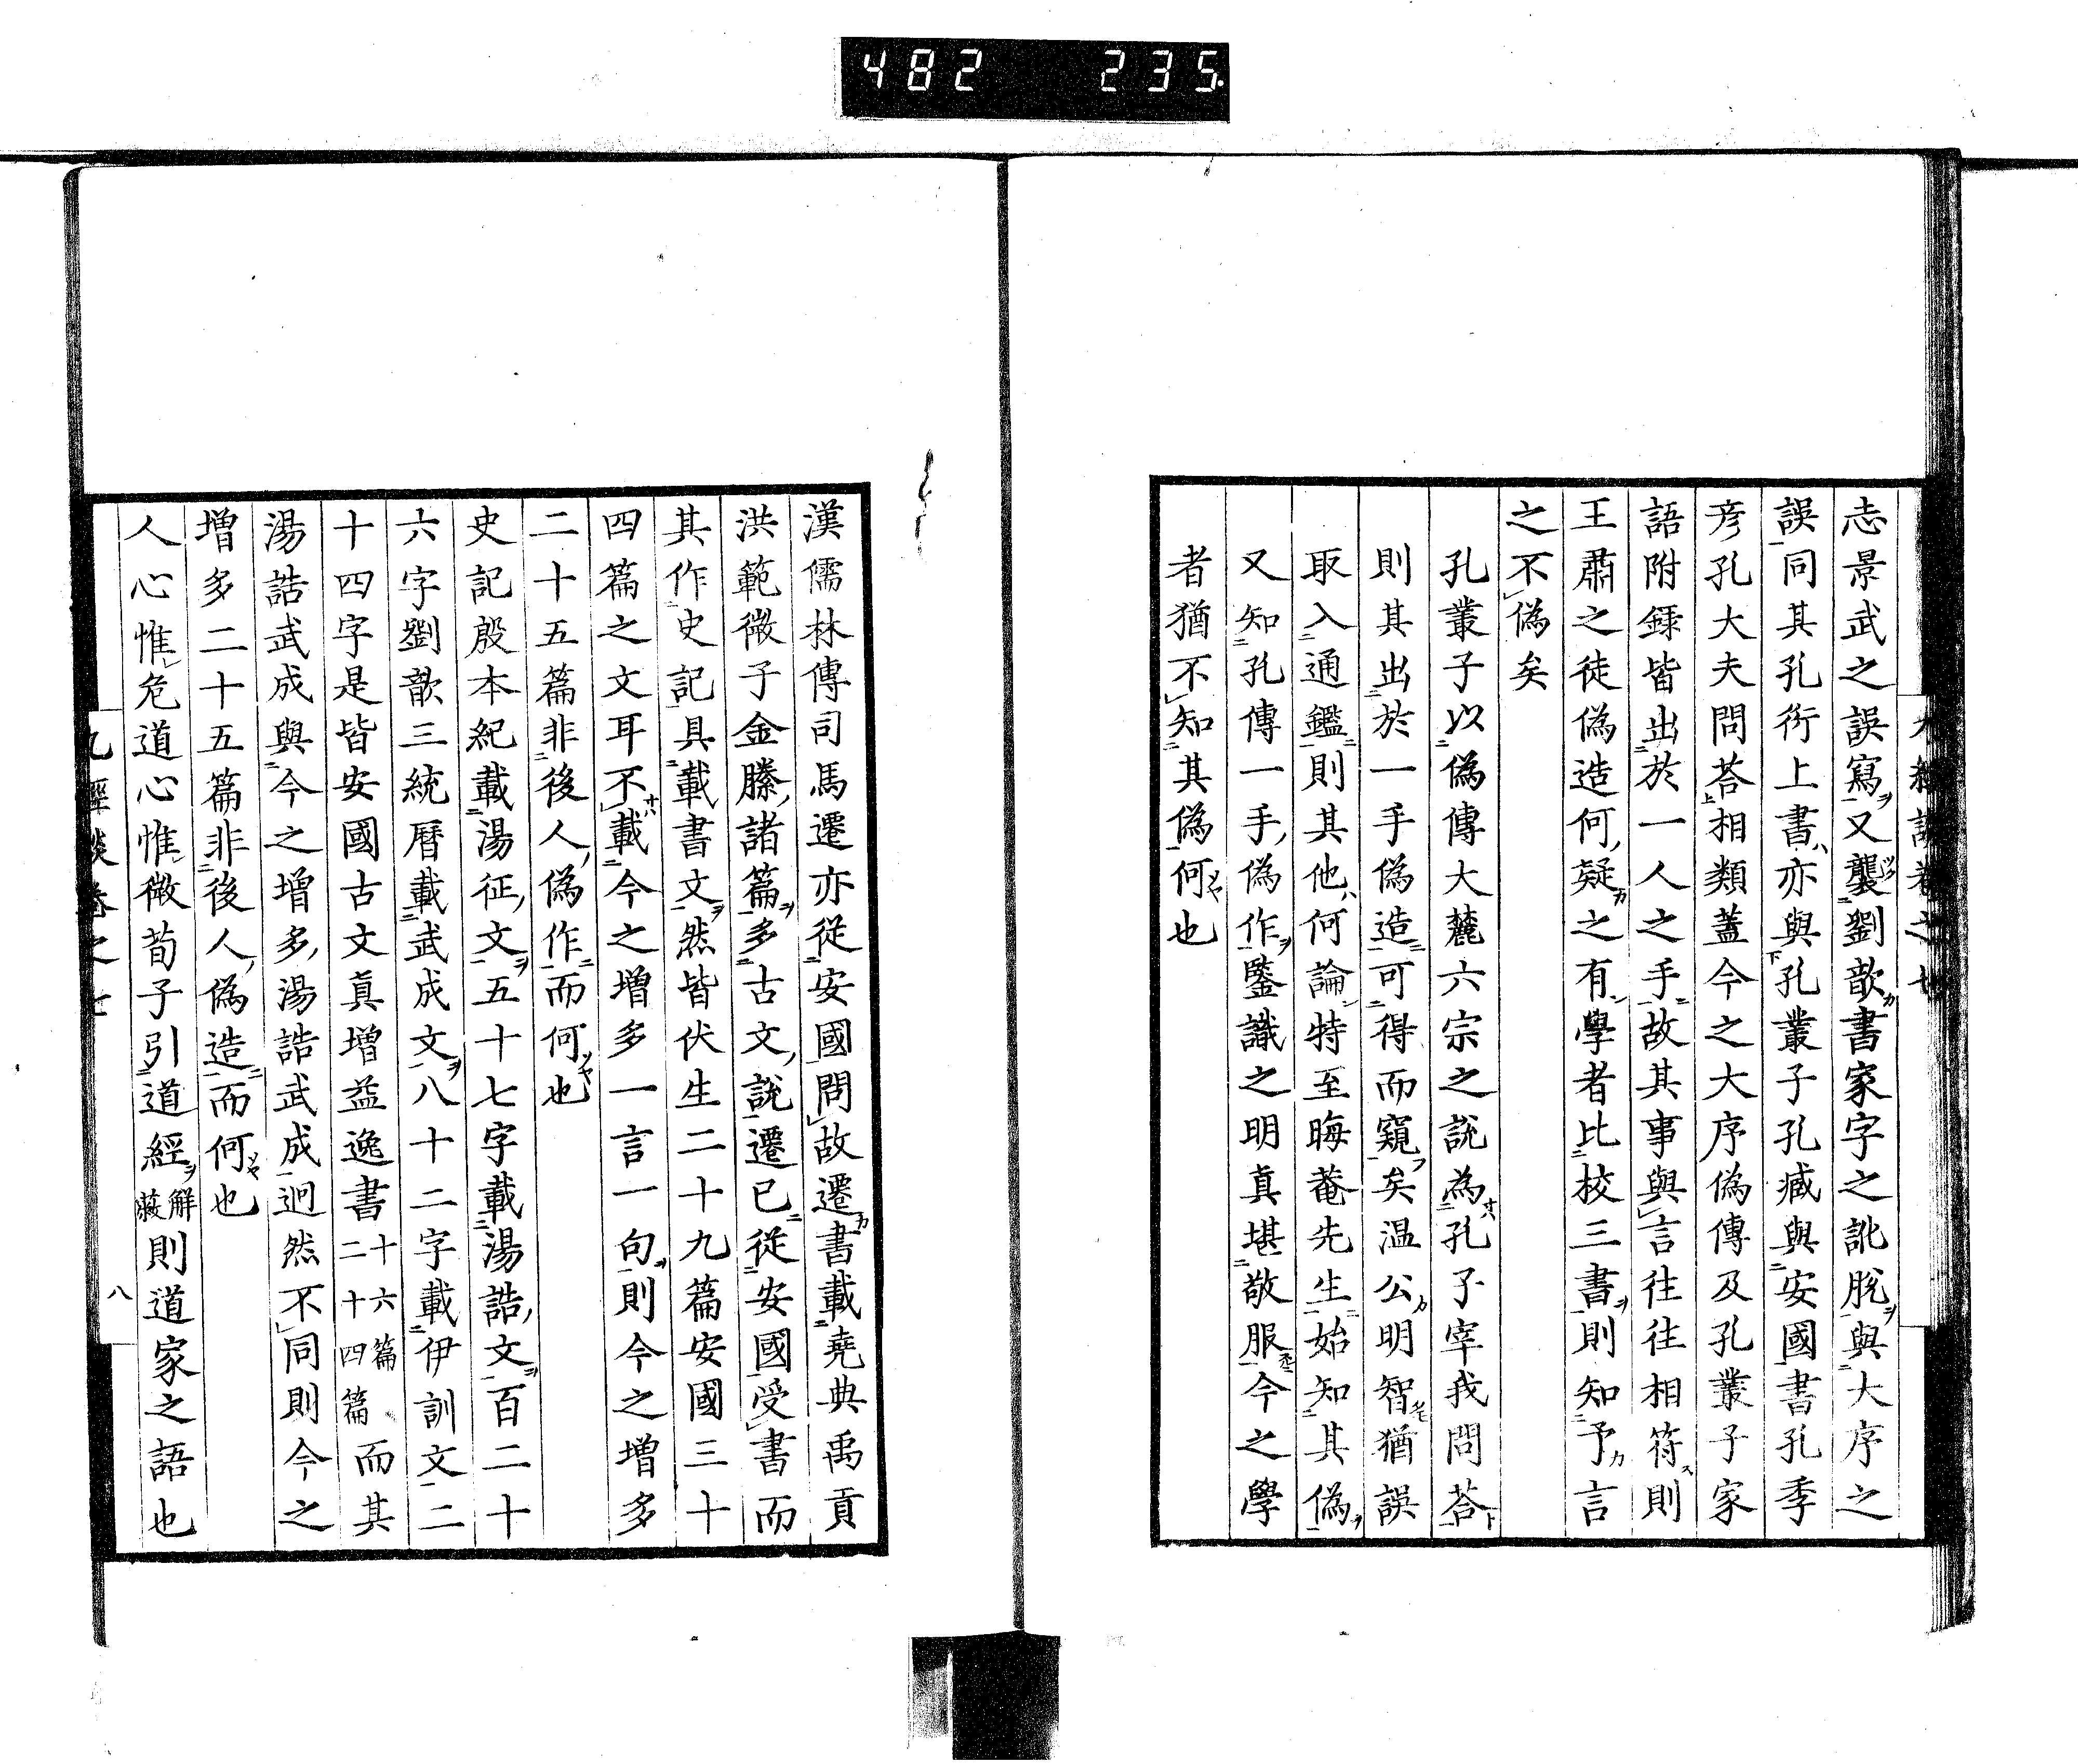 482 235.
志景武之誤寫又襲劉歆書家字之訛脫與大序之
誤同其孔衍上書亦與孔叢子孔臧與安國書孔季
彦孔大夫問荅相類蓋今之大序僞傳及孔叢子家
語附錄皆出於一人之手故其事與言往往相符則
王肅之徒僞造何疑之有學者比校三書則知予言
之不僞矣
孔叢子以僞傳大麓六宗之說為孔子宰我問荅
則其出於一手僞造可得而窺矣温公明智猶誤
取入通鑑則其他何論特至晦菴先生始知其僞
又知孔傳一手僞作鑒識之明真堪敬服今之學
者猶不知其僞何也
漢儒林傳司馬遷亦從安國問故遷書載堯典禹貢
洪範微子金縢諸篇多古文說遷已從安國受書而
其作史記具載書文然皆伏生二十九篇安國三十
四篇之文耳不載今之增多一言一句則今之增多
二十五篇非後人僞作而何也
史記殷本紀載湯征文五十七字載湯誥文百二十
六字劉歆三統曆載武成文八十二字載伊訓文二
十四字是皆安國古文真增益逸書十六篇二十四篇而其
湯誥武成與今之增多湯誥武成迥然不同則今之
增多二十五篇非後人僞造而何也
人心惟危道心惟微荀子引道經解蔽則道家之語也
九經談卷之七
八